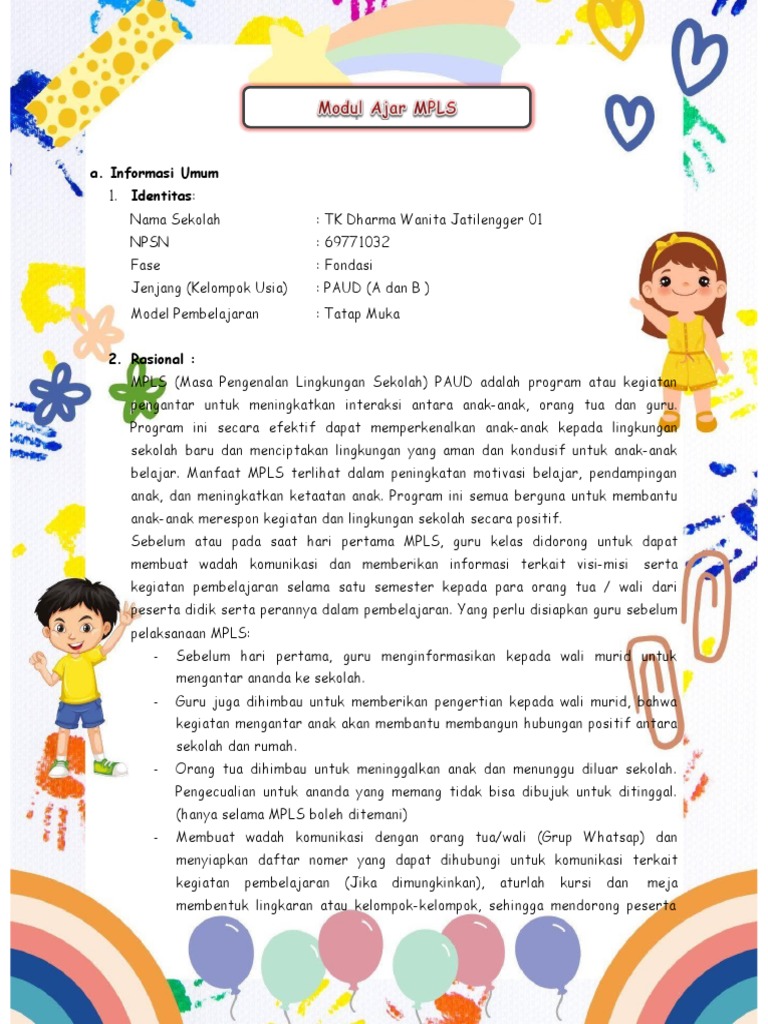 Modul Ajar MPLS
a. Informasi Umum
1. Identitas:
Nama Sekolah : TK Dharma Wanita Jatilengger 01
NPSN : 69771032
Fase : Fondasi
Jenjang (Kelompok Usia) : PAUD (A dan B )
Model Pembelajaran : Tatap Muka
2. Rasional :
MPLS (Masa Pengenalan Lingkungan Sekolah) PAUD adalah program atau kegiatan
pengantar untuk meningkatkan interaksi antara anak-anak, orang tua dan guru.
Program ini secara efektif dapat memperkenalkan anak-anak kepada lingkungan
sekolah baru dan menciptakan lingkungan yang aman dan kondusif untuk anak-anak
belajar. Manfaat MPLS terlihat dalam peningkatan motivasi belajar, pendampingan
anak, dan meningkatkan ketaatan anak. Program ini semua berguna untuk membantu
anak-anak merespon kegiatan dan lingkungan sekolah secara positif.
Sebelum atau pada saat hari pertama MPLS, guru kelas didorong untuk dapat
membuat wadah komunikasi dan memberikan informasi terkait visi-misi serta
kegiatan pembelajaran selama satu semester kepada para orang tua / wali dari
peserta didik serta perannya dalam pembelajaran. Yang perlu disiapkan guru sebelum
pelaksanaan MPLS:
- Sebelum hari pertama, guru menginformasikan kepada wali murid untuk
mengantar ananda ke sekolah.
- Guru juga dihimbau untuk memberikan pengertian kepada wali murid, bahwa
kegiatan mengantar anak akan membantu membangun hubungan positif antara
sekolah dan rumah.
- Orang tua dihimbau untuk meninggalkan anak dan menunggu diluar sekolah.
Pengecualian untuk ananda yang memang tidak bisa dibujuk untuk ditinggal.
(hanya selama MPLS boleh ditemani)
- Membuat wadah komunikasi dengan orang tua/wali (Grup Whatsap) dan
menyiapkan daftar nomer yang dapat dihubungi untuk komunikasi terkait
kegiatan pembelajaran (Jika dimungkinkan), aturlah kursi dan meja
membentuk lingkaran atau kelompok-kelompok, sehingga mendorong peserta